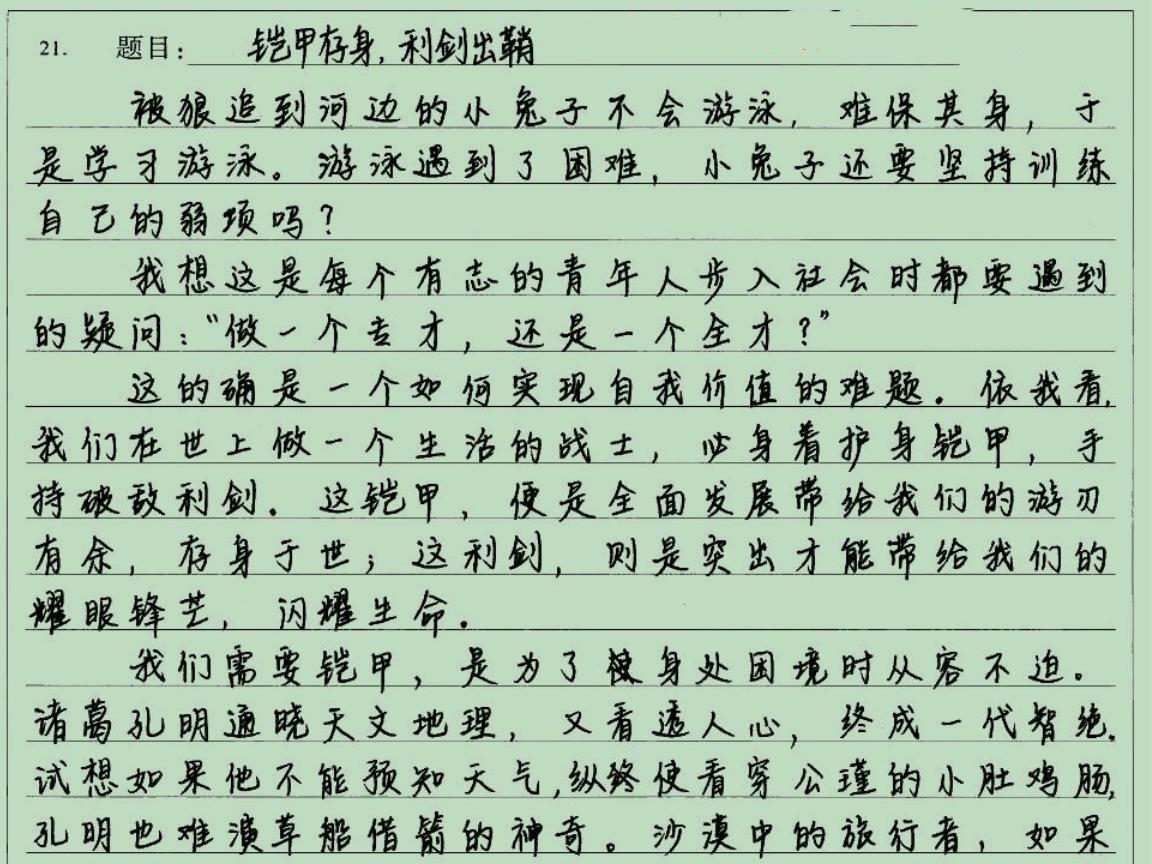 21. 题目：铠甲存身，利剑出鞘
被狼追到河边的小兔子不会游泳，难保其身，于
是学习游泳。游泳遇到了困难，小兔子还要坚持训练
自己的弱项吗？
我想这是每个有志的青年人步入社会时都要遇到
的疑问：“做一个专才，还是一个全才？”
这的确是一个如何实现自我价值的难题。依我看，
我们在世上做一个生活的战士，必身着护身铠甲，手
持破敌利剑。这铠甲，便是全面发展带给我们的游刃
有余，存身于世；这利剑，则是突出才能带给我们的
耀眼锋芒，闪耀生命。
我们需要铠甲，是为了使身处困境时从容不迫。
诸葛孔明通晓天文地理，又看透人心，终成一代智绝。
试想如果他不能预知天气，纵使看穿公瑾的小肚鸡肠，
孔明也难演草船借箭的神奇。沙漠中的旅行者，如果